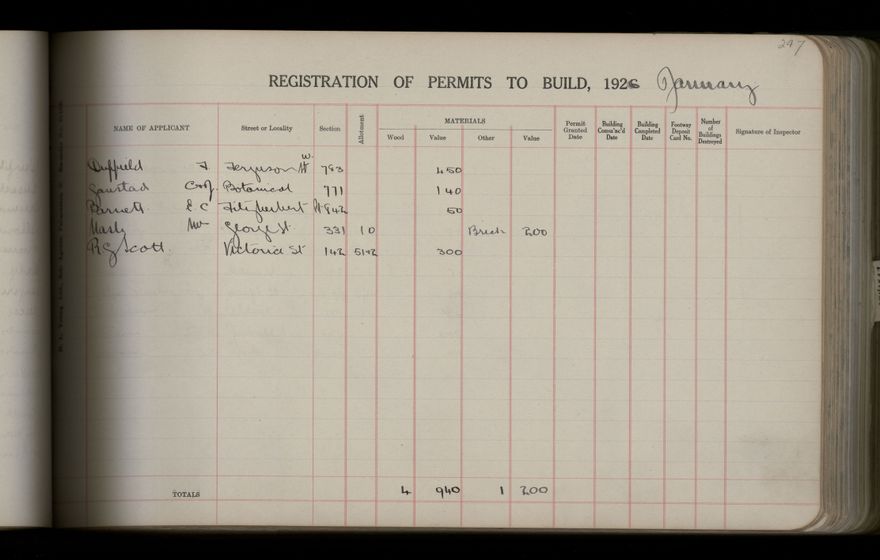 247
REGISTRATION OF PERMITS TO BUILD, 1926 January
NAME OF APPLICANT Street or Locality Section Allotment MATERIALS Wood Value Other Value Permit Granted Date Building Comm'nc'd Date Building Completed Date Footway Deposit Card No. Number of Buildings Destroyed Signature of Inspector
Duffield F Ferguson St W. 793 450
Gaustad Botanical 771 140
Barnett E C Fitzherbert Pt 942 50
Nash Mr George St 331 10 Brick 200
R G Scott Victoria St 142 300
TOTALS 4 940 1 200